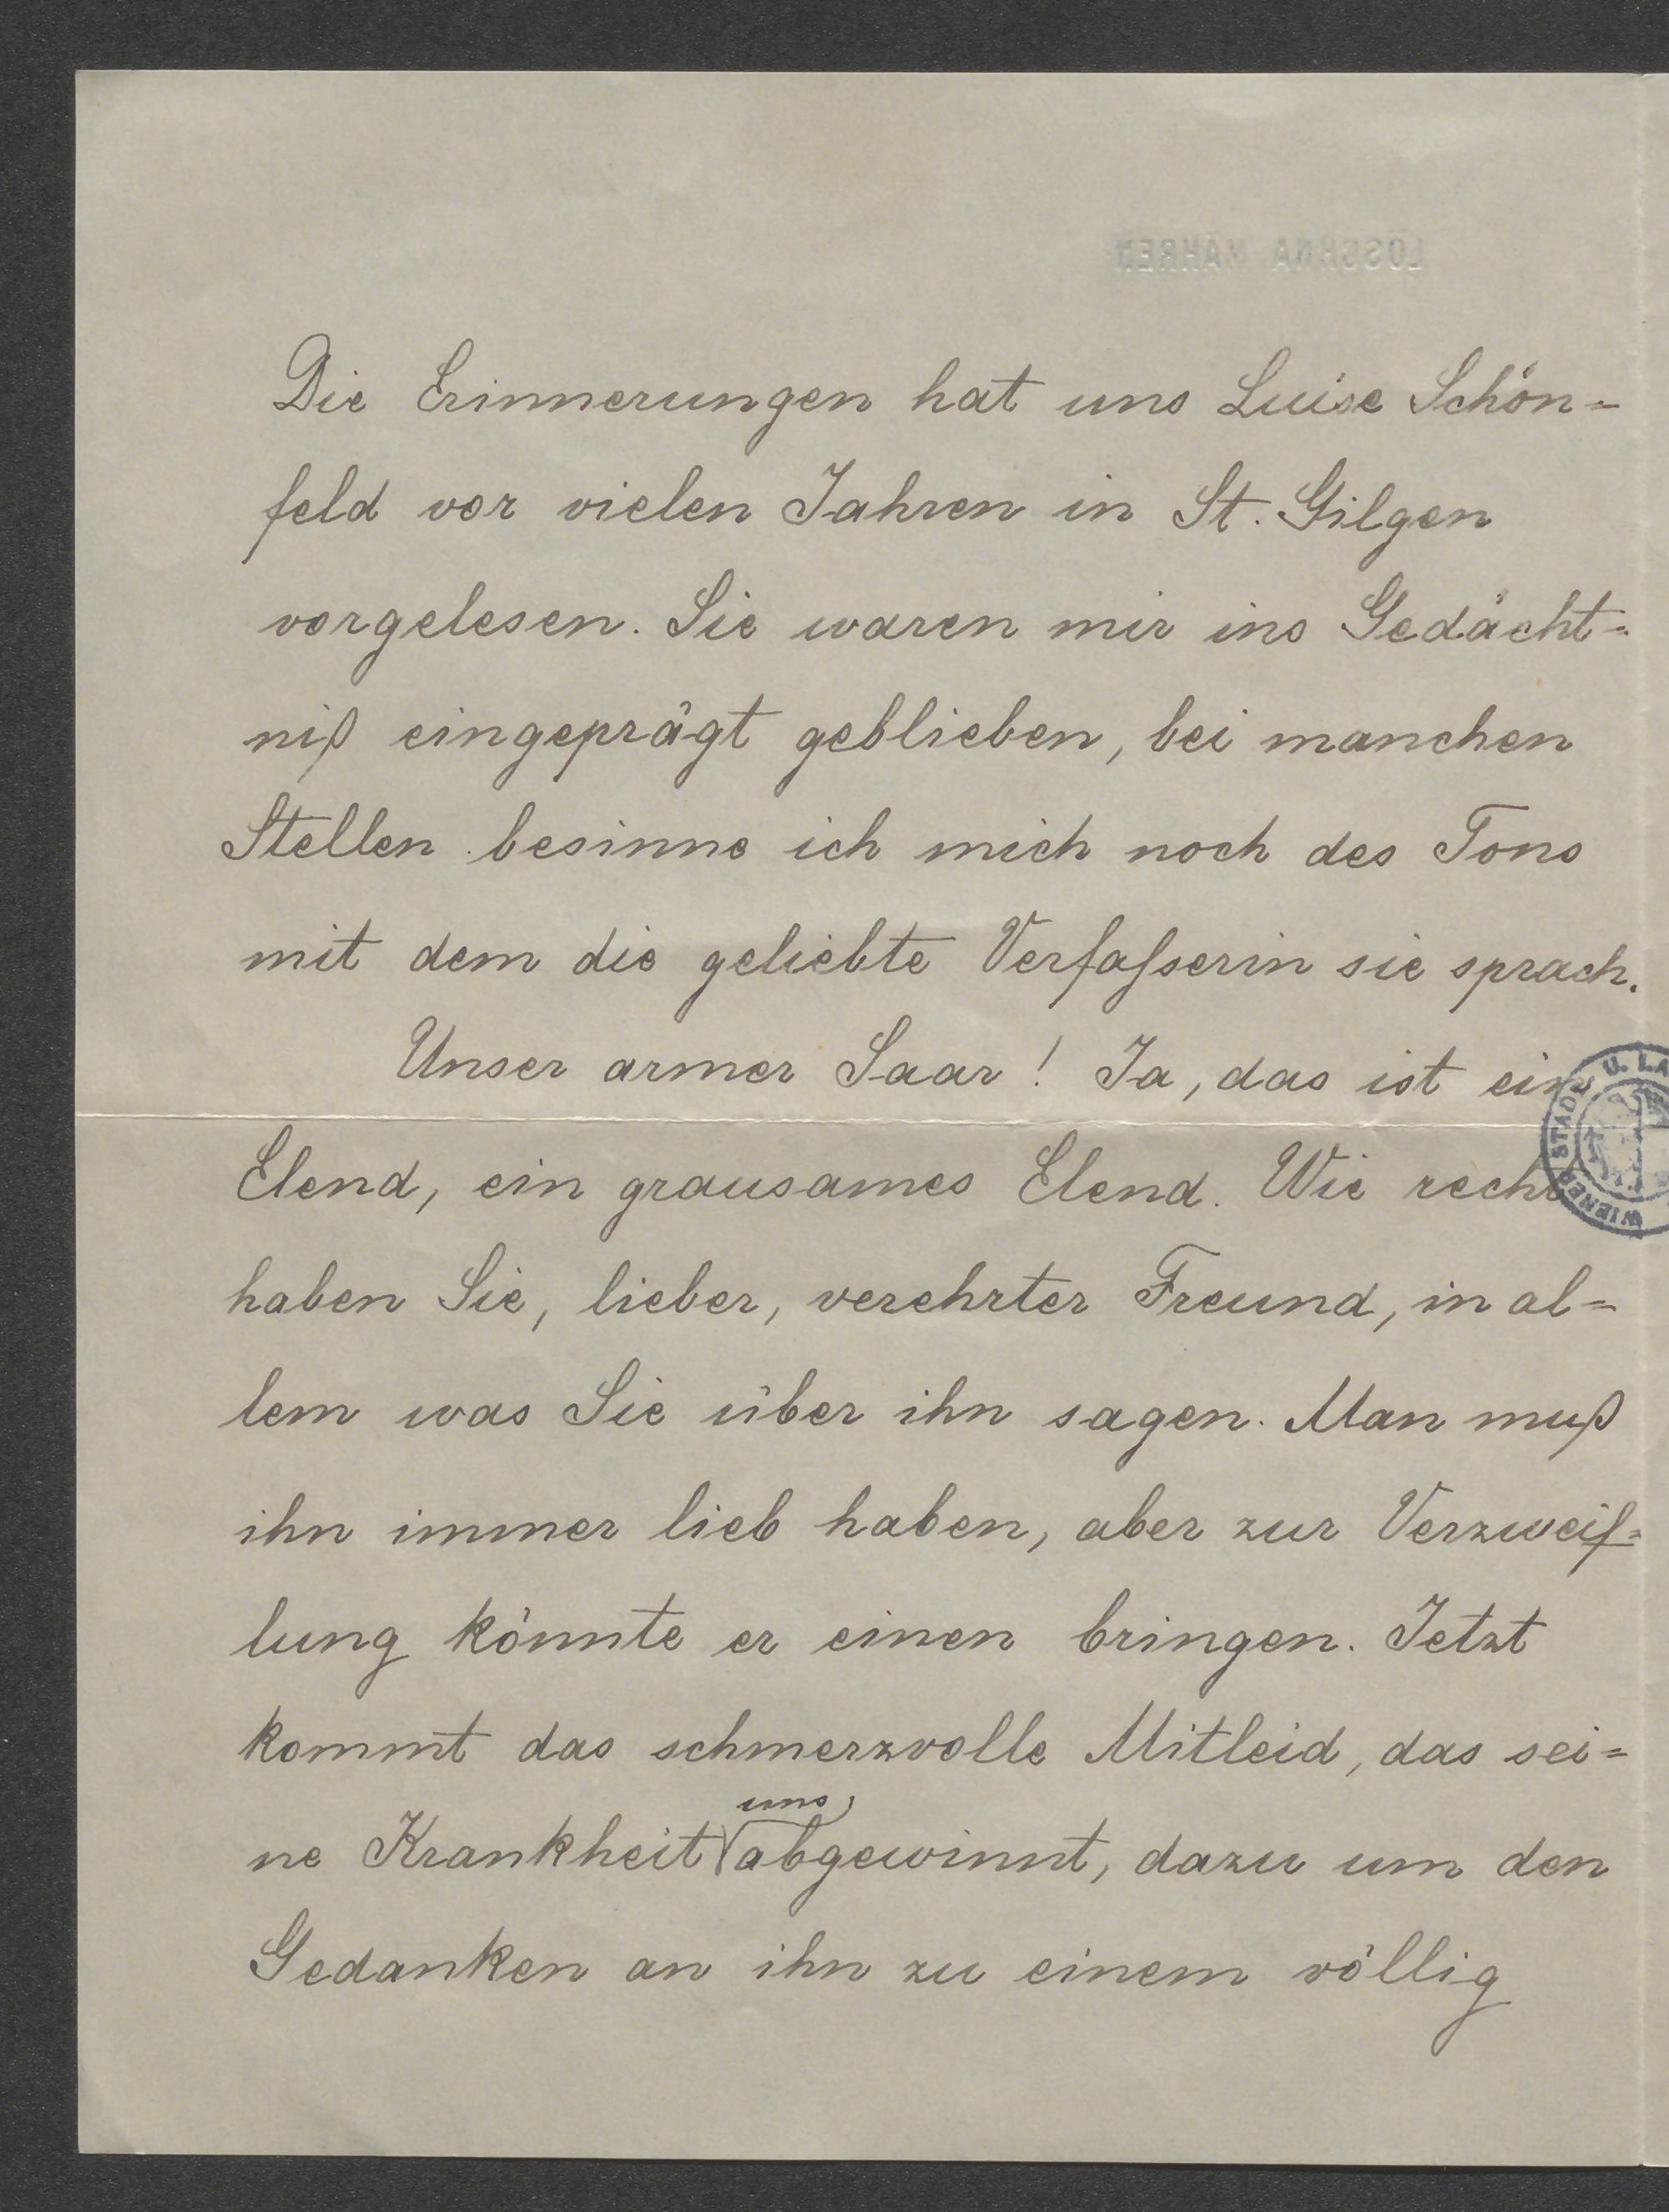 LOSCHNA MÄHREN
Die Erinnerungen hat uns Luise Schön=
feld vor vielen Jahren in St. Gilgen
vorgelesen. Sie waren mir ins Gedächt=
niß eingeprägt geblieben, bei manchen
Stellen besinne ich mich noch des Tons
mit dem die geliebte Verfaßerin sie sprach.
Unser armer Saar! Ja, das ist ein
Elend, ein grausames Elend. Wie recht
haben Sie, lieber, verehrter Freund, in al=
lem was Sie über ihn sagen. Man muß
ihn immer lieb haben, aber zur Verzweif=
lung könnte er einen bringen. Jetzt
kommt das schmerzvolle Mitleid, das sei=
uns
ne Krankheit abgewinnt, dazu um den
Gedanken an ihn zu einem völlig
WIENER STADT U. LA